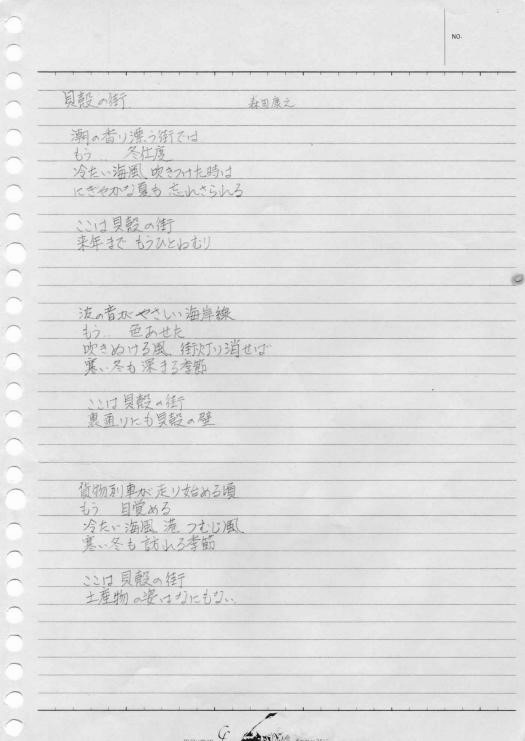 NO.
貝殻の街 森田康之
潮の香り漂う街では
もう... 冬仕度
冷たい海風、吹きつけた時は
にぎやかな夏も 忘れさられる
ここは貝殻の街
来年まで もうひとねむり
波の音が やさしい海岸線
もう... 色あせた
吹きぬける風、街灯り消せば
寒い冬も 深まる季節
ここは貝殻の街
裏通りにも貝殻の壁
貨物列車が 走り始める頃
もう 目覚める
冷たい海風 港 つむじ風
寒い冬も 訪れる季節
ここは貝殻の街
土産物の姿はなにもない